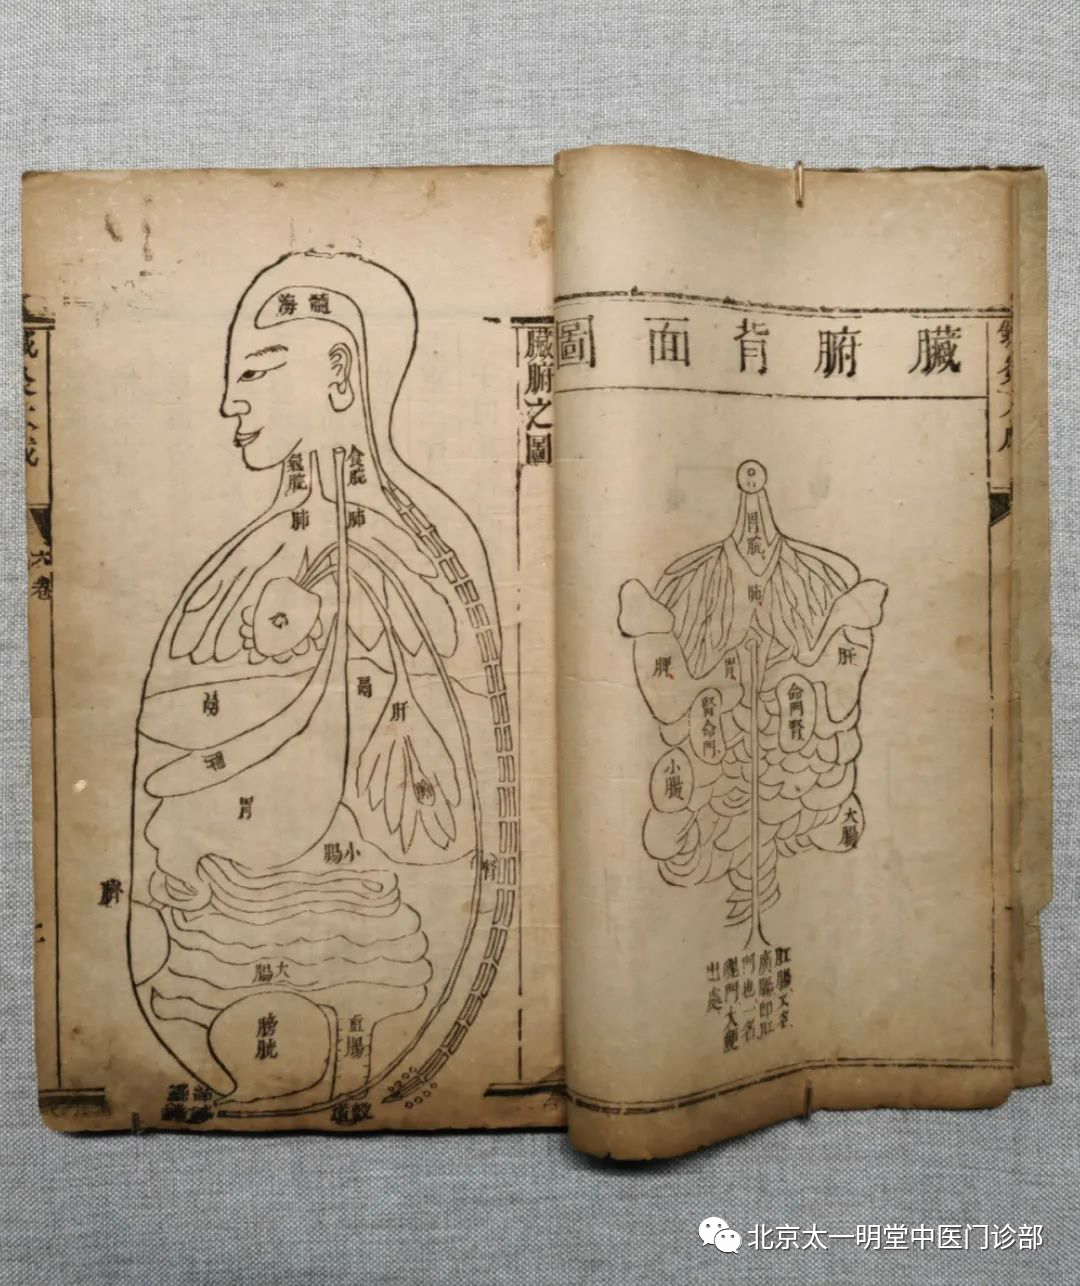 臟腑背面圖
胃脘
肺
脾
胃
肝
腎命門
命門腎
小腸
大腸
肛腸又名
廣腸即肛
門也一名
魄門大便
出處
臟腑之圖
髓海
食脘
氣脘
肺
肺
心
膈
膈
肝
脾
膽
胃
小腸
腎
臍
大腸
膀胱
肛腸
穀道
六卷
北京太一明堂中医门诊部